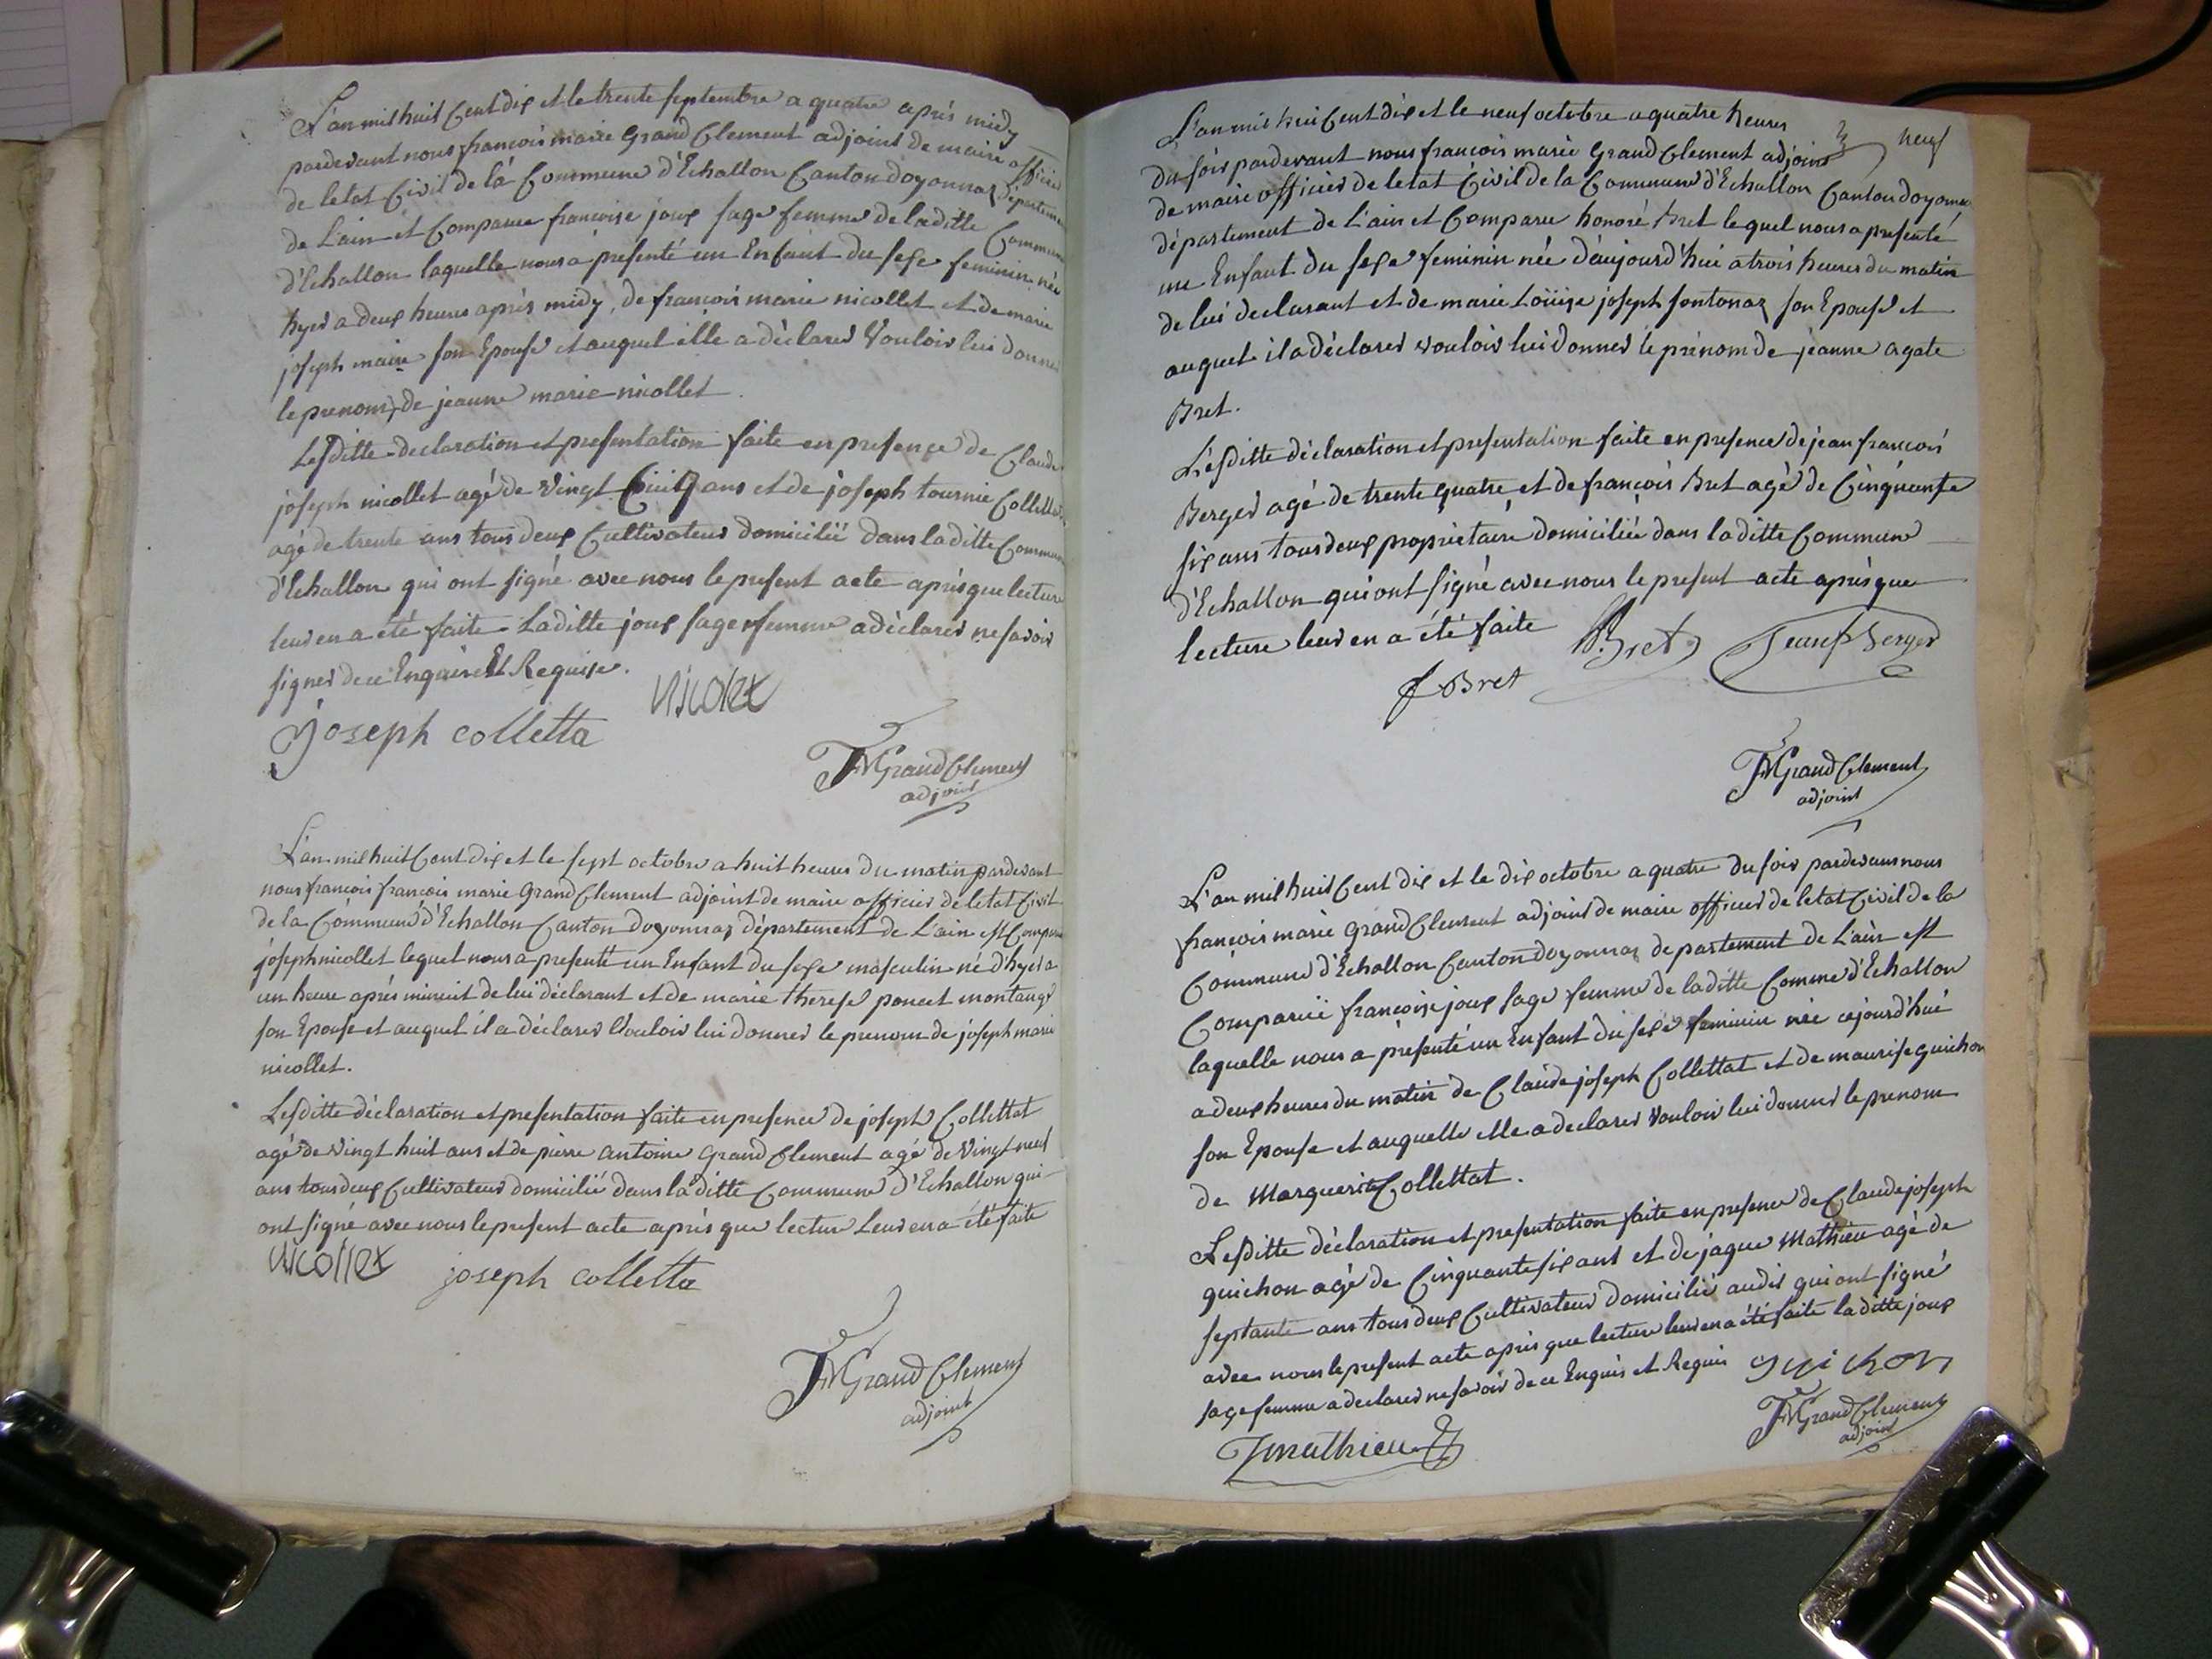 L'an mil huit Cent dix et le trente septembre a quatre après midy
pardevant nous francois marie Grand Clement adjoint de maire officier
de letat Civil de la Commune d'Echallon Canton doyonnaz département
de L'ain et Comparue francoise joux sage femme de laditte Commune
d'Echallon laquelle nous a présenté un Enfant du sexe feminin née
hyer a deux heures après midy, de francois marie nicollet et de marie
joseph maire son Epouse et auquel elle a déclarer Vouloir lui donner
le prenom de jeanne marie nicollet
Lesditte declaration et presentation faite en presence de Claude
joseph nicollet agé de Vingt ans et de joseph tournie Collettat
agé de trente ans tous deux Cultivateur domicilié dans laditte Commune
d'Echallon qui ont signé avec nous le present acte après que lecture
leur en a été faite Laditte joux sage femme a déclarer ne savoir
signer de ce Enquise Et Requise.
nicolet
joseph colletta
FMGrandClement
adjoint
L'an mil huit Cent dix et le sept octobre a huit heures du matin pardevant
nous francois francois marie Grand Clement adjoint de maire officier de letat Civil
de la Commune d'Echallon Canton doyonnaz département de L'ain est Comparu
joseph nicollet lequel nous a presenté un Enfant du sexe masculin né d'hyer a
un heure après minuit de lui déclarant et de marie therese poncet montange
son Epouse et auquel il a déclarer Vouloir lui donner le prenom de joseph marie
nicollet.
Lesditte déclaration et presentation faite en presence de joseph Collettat
agé de Vingt huit ans et de pierre antoine Grand Clement agé de Vingt neuf
ans tous deux Cultivateur domicilié dans laditte Commune d'Echallon qui
ont signé avec nous le present acte après que lecture Leur en a été faite
nicollet joseph colletta
FMGrandClement
adjoint
neuf
L'an mil huit Cent dix et le neuf octobre a quatre heures
du soir pardevant nous francois marie Grand Clement adjoint
de maire officier de letat Civil de la Commune d'Echallon Canton doyonnaz
département de L'ain et Comparu honoré Bret lequel nous a presenté
un Enfant du sexe feminin née d'aujourd'hui a trois heures du matin
de lui declarant et de marie Loüise joseph fontonaz son Epouse et
auquel il a déclarer vouloir lui donner le prénom de jeanne agate
Bret.
Lesditte déclaration et presentation faite en presence de jean francois
Berger agé de trente quatre et de francois Bret agé de Cinquante
six ans tous deux propriétaire domiciliée dans laditte Commune
d'Echallon qui ont signé avec nous le present acte après que
lecture leur en a été faite
h.Bret jeanfBerger
f Bret
FMGrandClement
adjoint
L'an mil huit Cent dix et le dix octobre a quatre du soir pardevant nous
francois marie Grand Clement adjoint de maire officier de letat Civil de la
Commune d'Echallon Canton doyonnaz departement de L'ain est
Comparüe francoise joux sage femme de laditte Comme d'Echallon
laquelle nous a présenté un Enfant du sexe feminin née cejourd'hui
a deux heures du matin de Claude joseph Collettat et de maurise guichon
son Epouse et auquelle elle a declarer Vouloir lui donner le prenom
de Marguerite Collettat.
Lesditte déclaration et presentation faite en presence de Claude joseph
guichon agé de Cinquante six ans et de jaque Mathieu agé de
septante ans tous deux Cultivateur domicilié audit qui ont signé
avec nous le present acte après que lecture leur en a été faite laditte joux
sage femme a declarer ne savoir de ce Enquis et Requis guichon
FMGrandClement
adjoint
Jmathieu